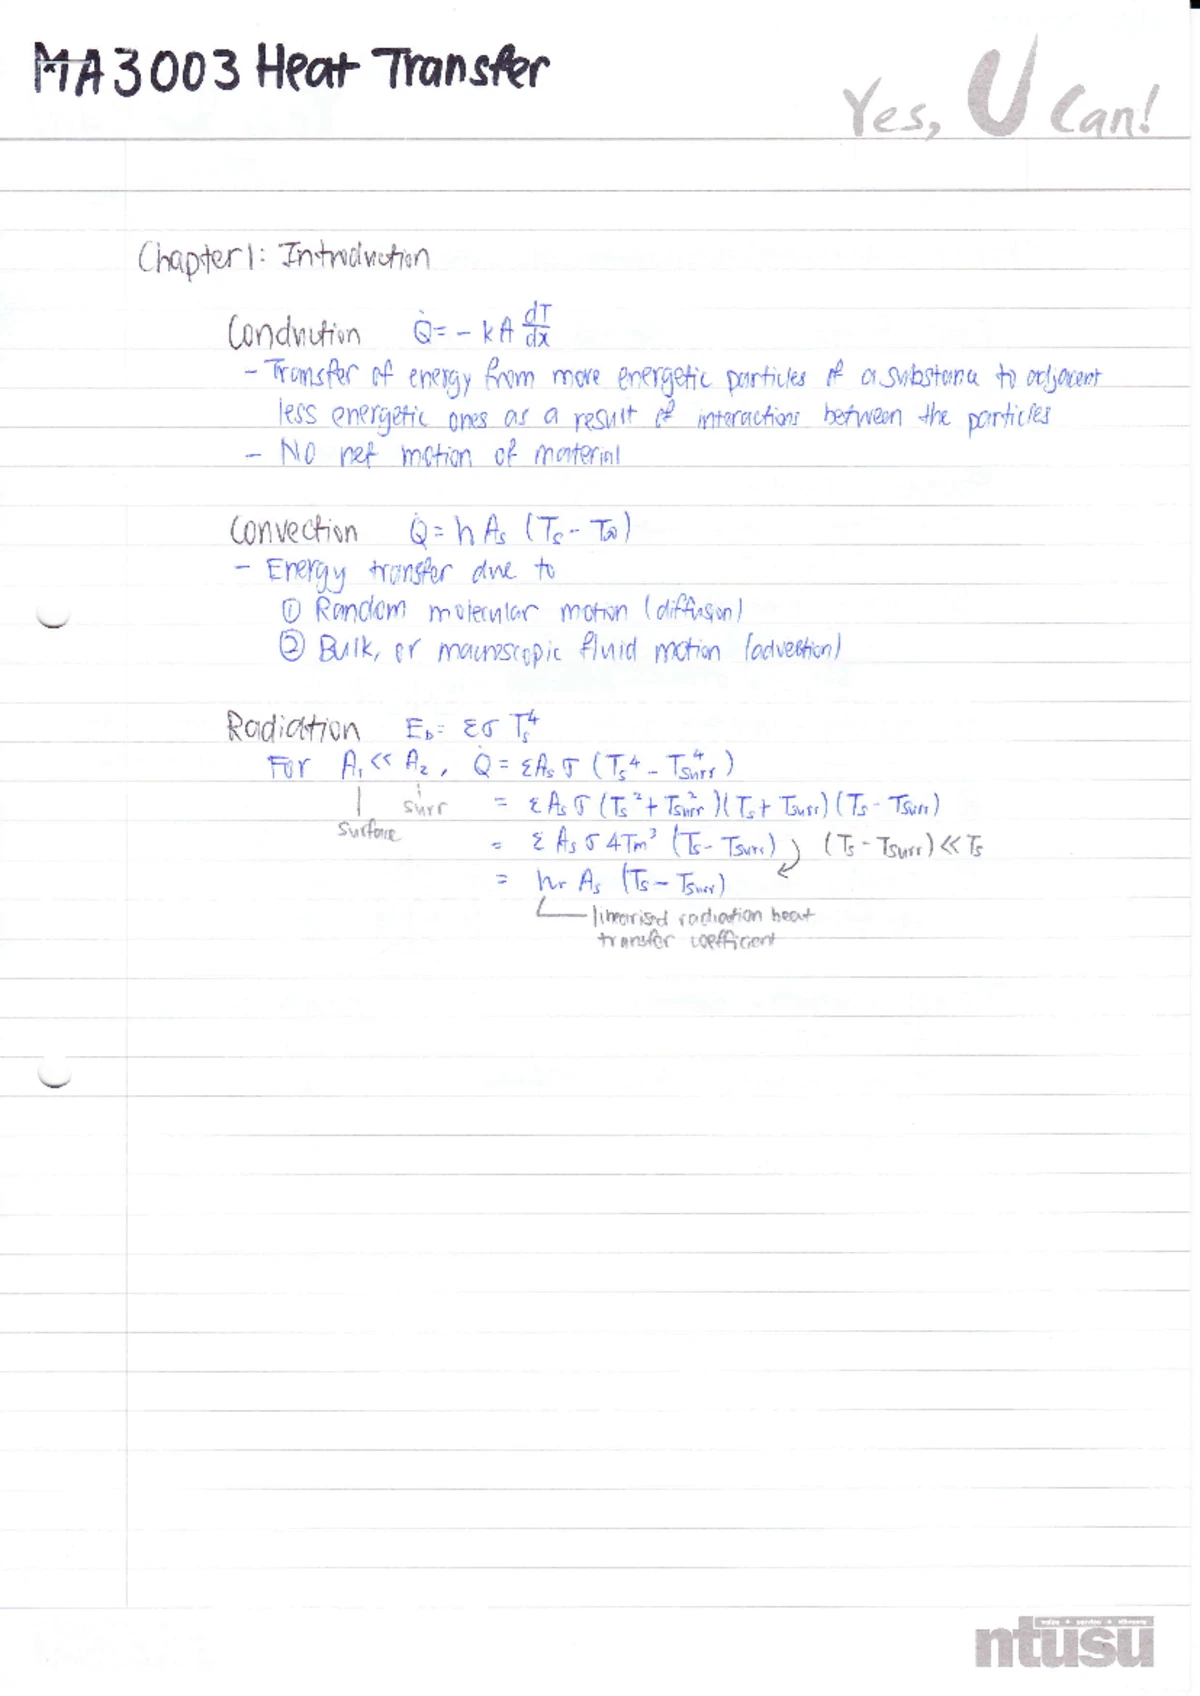 MA3003 Heat Transfer
Yes, U Can!
Chapter 1: Introduction
Conduction Q̇ = - kA dT/dx
- Transfer of energy from more energetic particles of a substance to adjacent
less energetic ones as a result of interactions between the particles
- No net motion of material
Convection Q̇ = h As (Ts - T∞)
- Energy transfer due to
① Random molecular motion (diffusion)
② Bulk, or macroscopic fluid motion (advection)
Radiation Eb = εσ Ts⁴
For A₁ << A₂, Q̇ = εAsσ (Ts⁴ - Tsurr⁴)
surface
surr
= εAsσ (Ts² + Tsurr²)(Ts + Tsurr)(Ts - Tsurr)
= εAsσ4Tm³ (Ts - Tsurr) (Ts - Tsurr) << Ts
= hr As (Ts - Tsurr)
linearised radiation heat
transfer coefficient
ntusu